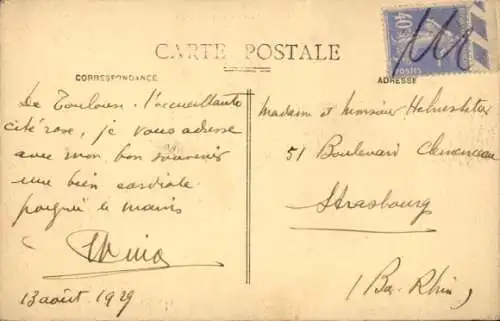 CARTE POSTALE
CORRESPONDANCE
De Toulouse, l'accueillante
cité rose, je vous adresse
avec mon bon souvenir
une bien cordiale
poignée de mains
13 août 1929
40c
POSTES
ADRESSE
Madame et Monsieur
51 Boulevard Clemenceau
Strasbourg
(Bas-Rhin)